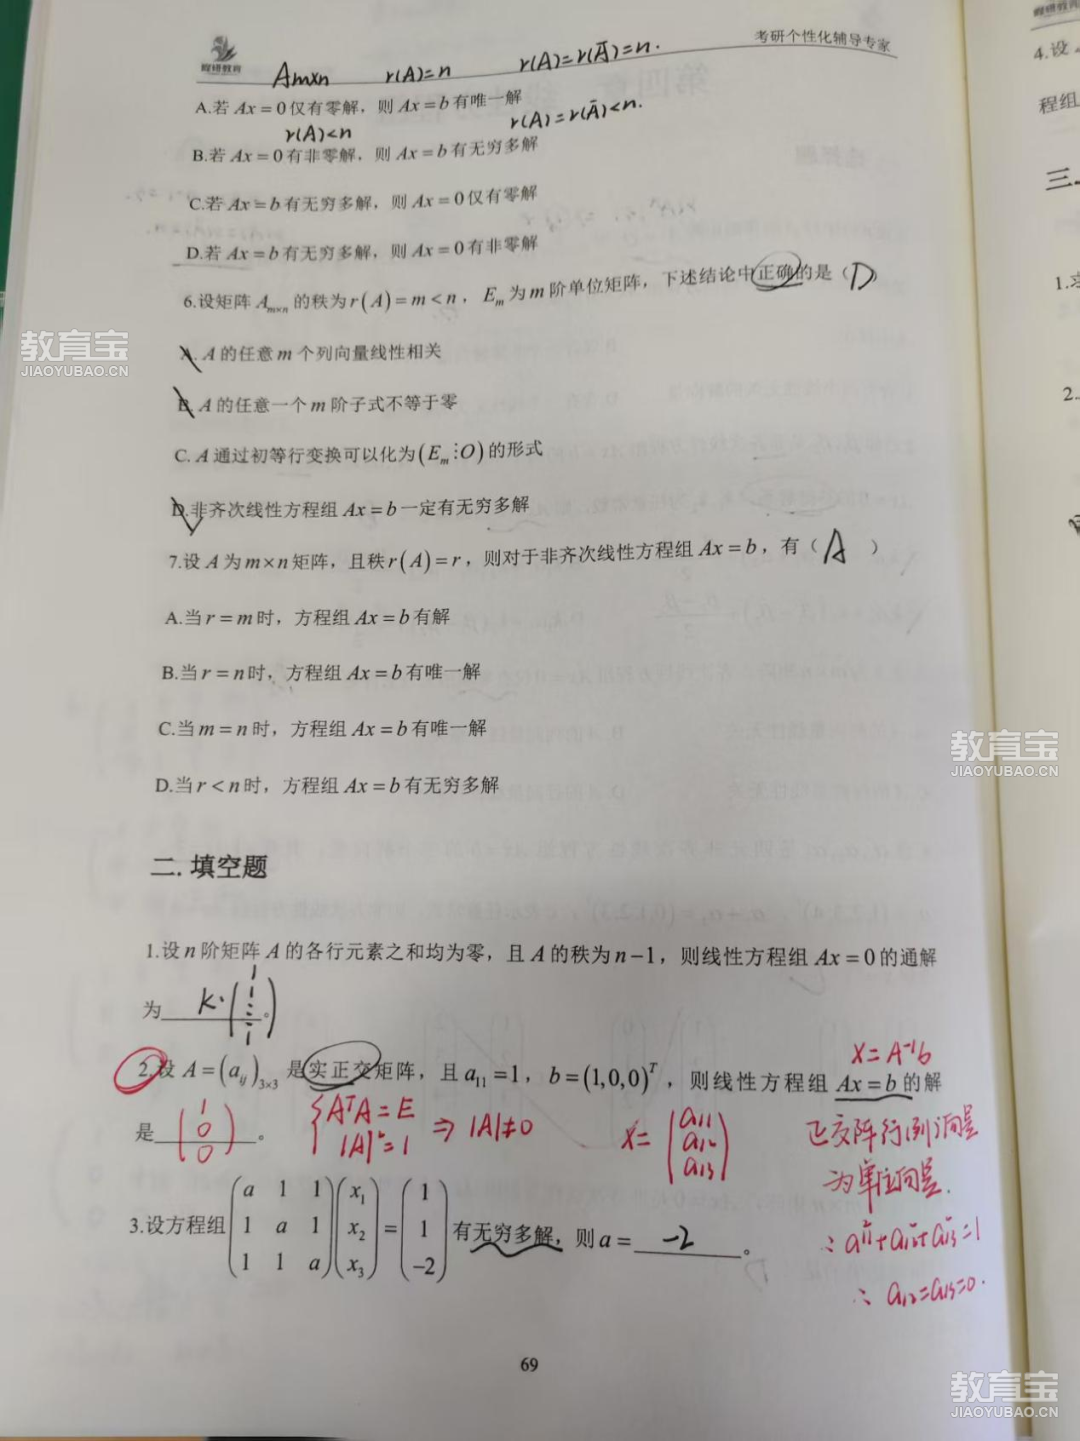 橙研教育
考研个性化辅导专家
Am×n r(A)=n r(A)=r(Ā)=n.
A.若 Ax = 0 仅有零解，则 Ax = b 有唯一解
r(A)<n r(A)=r(Ā)<n.
B.若 Ax = 0 有非零解，则 Ax = b 有无穷多解
C.若 Ax = b 有无穷多解，则 Ax = 0 仅有零解
D.若 Ax = b 有无穷多解，则 Ax = 0 有非零解
6.设矩阵 Am×n 的秩为 r(A) = m < n，Em 为 m 阶单位矩阵，下述结论中正确的是（D）
A. A 的任意 m 个列向量线性相关
B. A 的任意一个 m 阶子式不等于零
C. A 通过初等行变换可以化为 (Em ⋮ O) 的形式
D.非齐次线性方程组 Ax = b 一定有无穷多解
7.设 A 为 m×n 矩阵，且秩 r(A) = r，则对于非齐次线性方程组 Ax = b，有（A）
A.当 r = m 时，方程组 Ax = b 有解
B.当 r = n 时，方程组 Ax = b 有唯一解
C.当 m = n 时，方程组 Ax = b 有唯一解
D.当 r < n 时，方程组 Ax = b 有无穷多解
二. 填空题
1.设 n 阶矩阵 A 的各行元素之和均为零，且 A 的秩为 n−1，则线性方程组 Ax = 0 的通解
为 k·(1 1 ⋮ 1)。
x=A⁻¹b
2.设 A = (aij)3×3 是实正交矩阵，且 a11 = 1，b = (1,0,0)T，则线性方程组 Ax = b 的解
是 (1 0 0)。 {AᵀA=E |A|²=1 ⇒ |A|≠0 x=(a11 a12 a13) 正交阵行(列)向量
为单位向量.
3.设方程组 (a 1 1 1 a 1 1 1 a)(x1 x2 x3) = (1 1 −2) 有无穷多解，则 a = −2。
∴ a11²+a12²+a13²=1
∴ a12=a13=0.
69
4.设
程组
三.
1.求
2.
教育宝
JIAOYUBAO.CN
教育宝
JIAOYUBAO.CN
教育宝
JIAOYUBAO.CN